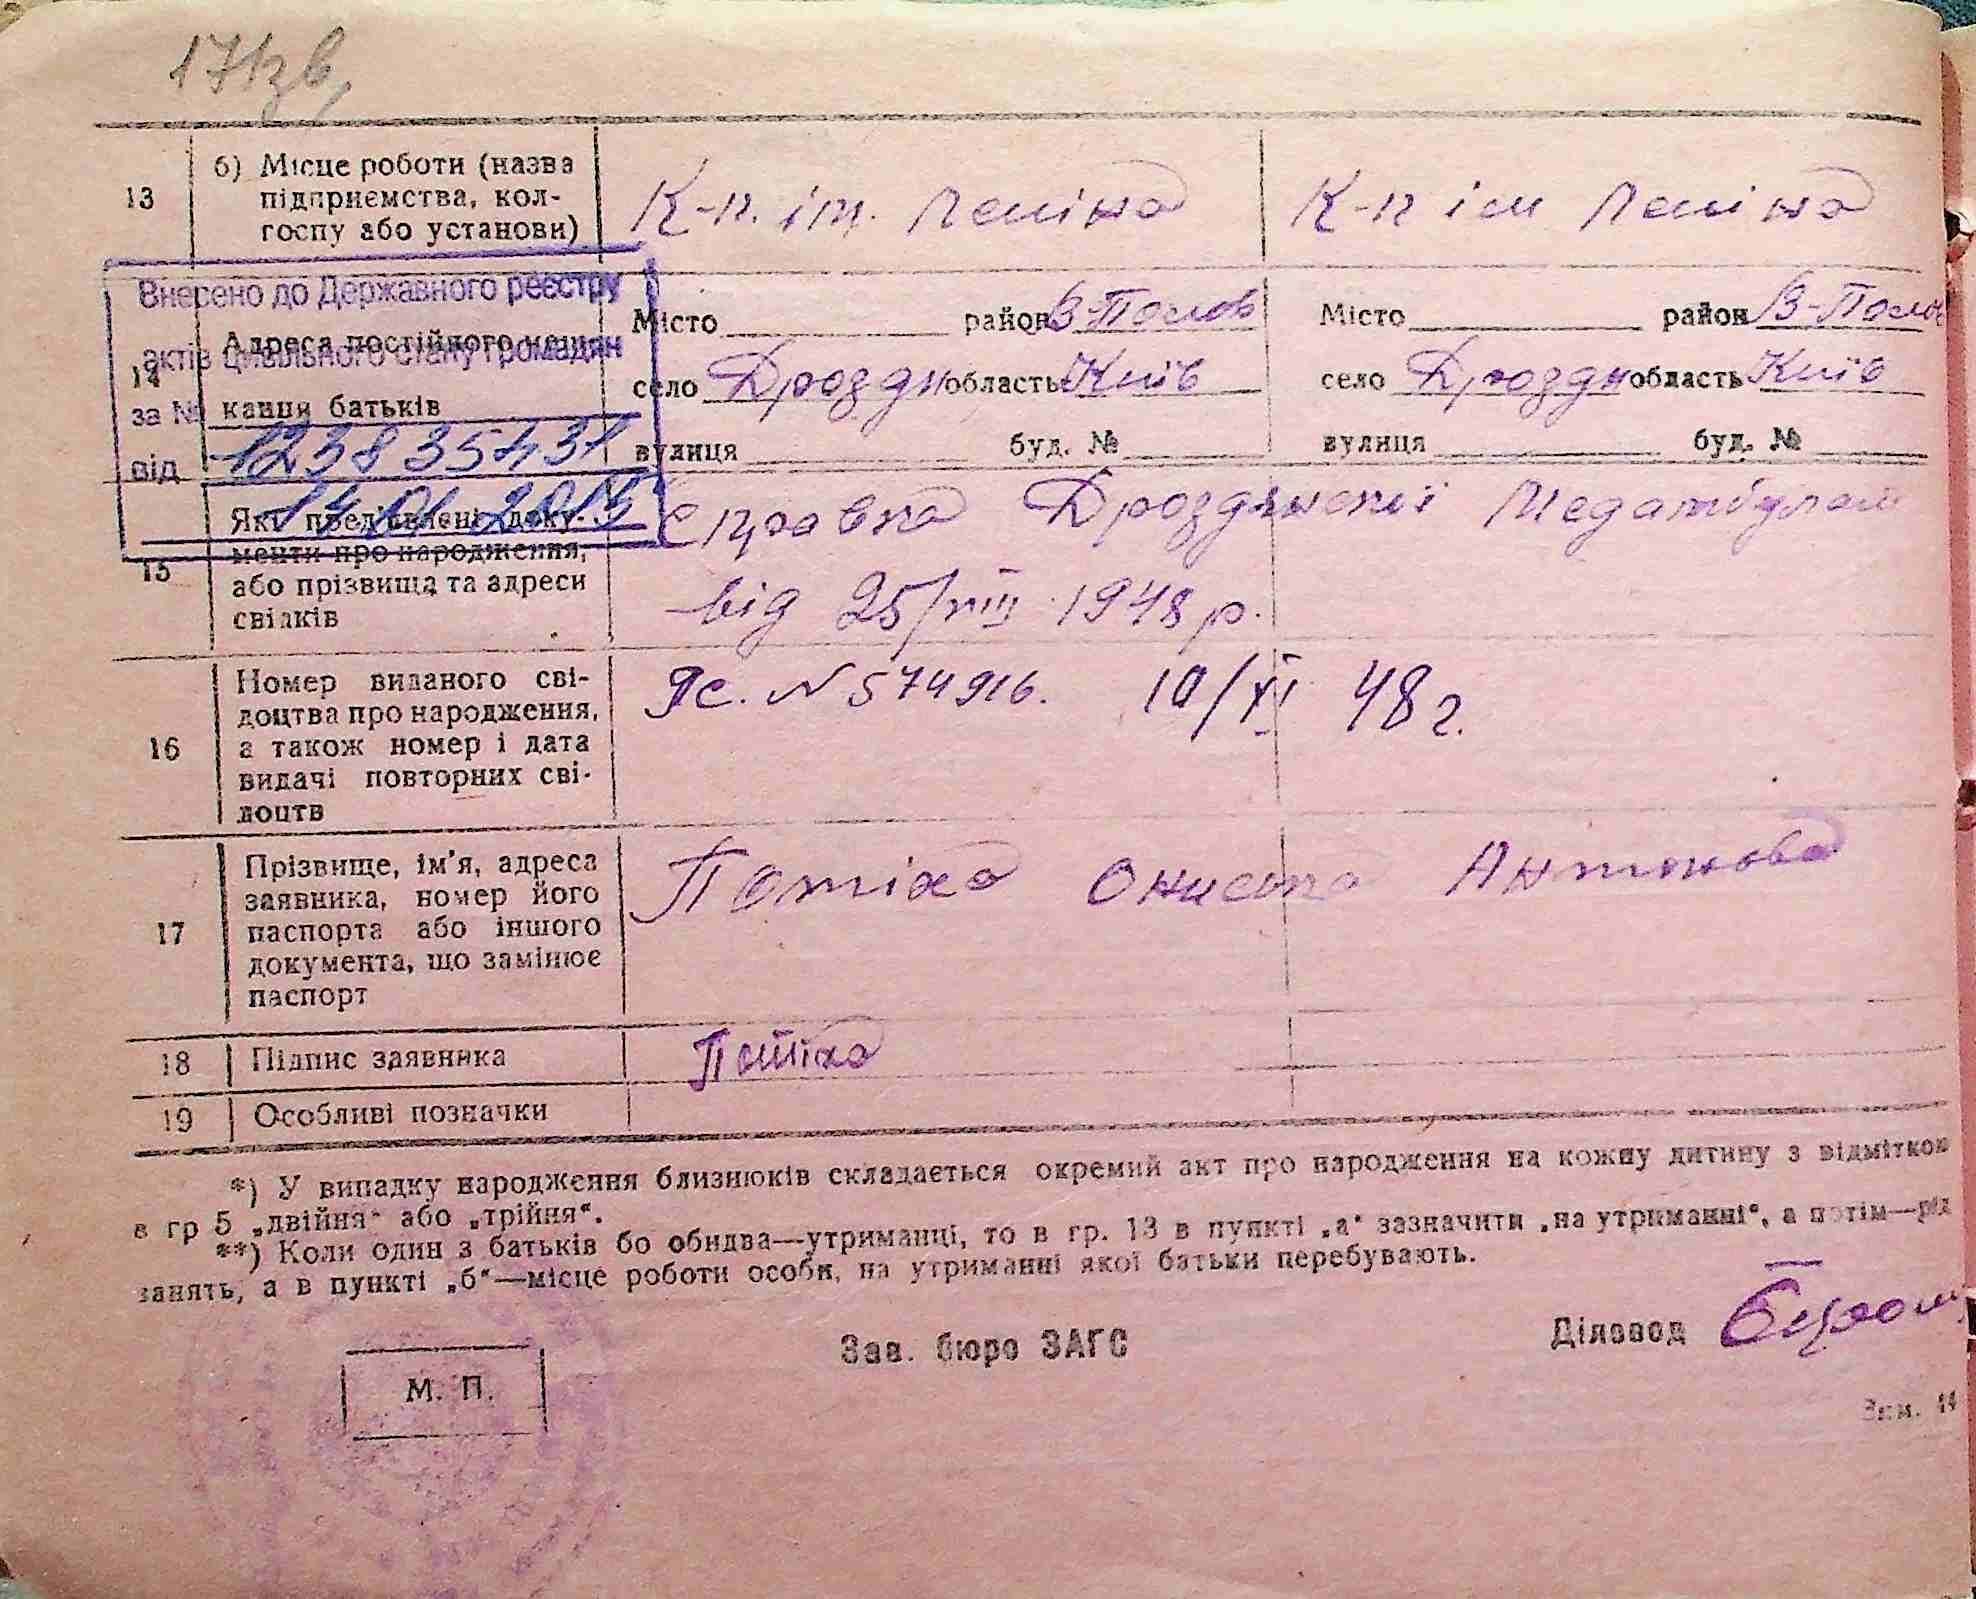 171зв
13
б) Місце роботи (назва
підприємства, кол-
госпу або установи)
К-п. ім. Леніна
К-п ім Леніна
Внесено до Державного реєстру
актів цивільного стану громадян
за №
123835431
від
14
Адреса постійного меш-
кання батьків
Місто район
село Дрозди область Київ
вулиця буд. №
Місто район
село Дрозди область Київ
вулиця буд. №
15
Які пред'явлені доку-
менти про народження,
або прізвища та адреси
свідків
Справка Дроздянської
від 25/VIII 1948 р.
16
Номер виданого сві-
доцтва про народження,
а також номер і дата
видачі повторних сві-
доцтв
N 574916. 10/XI 48 г.
17
Прізвище, ім'я, адреса
заявника, номер його
паспорта або іншого
документа, що замінює
паспорт
Потіха Ониська Антонова
18
Підпис заявника
Потіха
19
Особливі позначки
*) У випадку народження близнюків складається окремий акт про народження на кожну дитину з відміткою
в гр 5 „двійня“ або „трійня“.
**) Коли один з батьків бо обидва—утриманці, то в гр. 13 в пункті „а“ зазначити „на утриманні“, а потім—рід
занять, а в пункті „б“—місце роботи особи, на утриманні якої батьки перебувають.
М. П.
Зав. бюро ЗАГС
Діловод